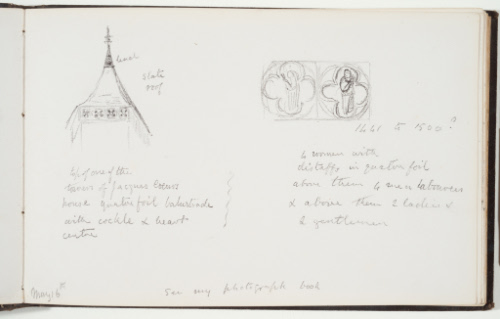 lead
slate
roof
1441 to 1500?
top of one of the
towers of Jacques Coeurs
house quatrefoil balustrade
with cockle & heart
centre
4 women with
distaffs in quatrefoil
above them 4 men labourers
& above them 2 ladies &
2 gentlemen
May 16th
See my photograph book